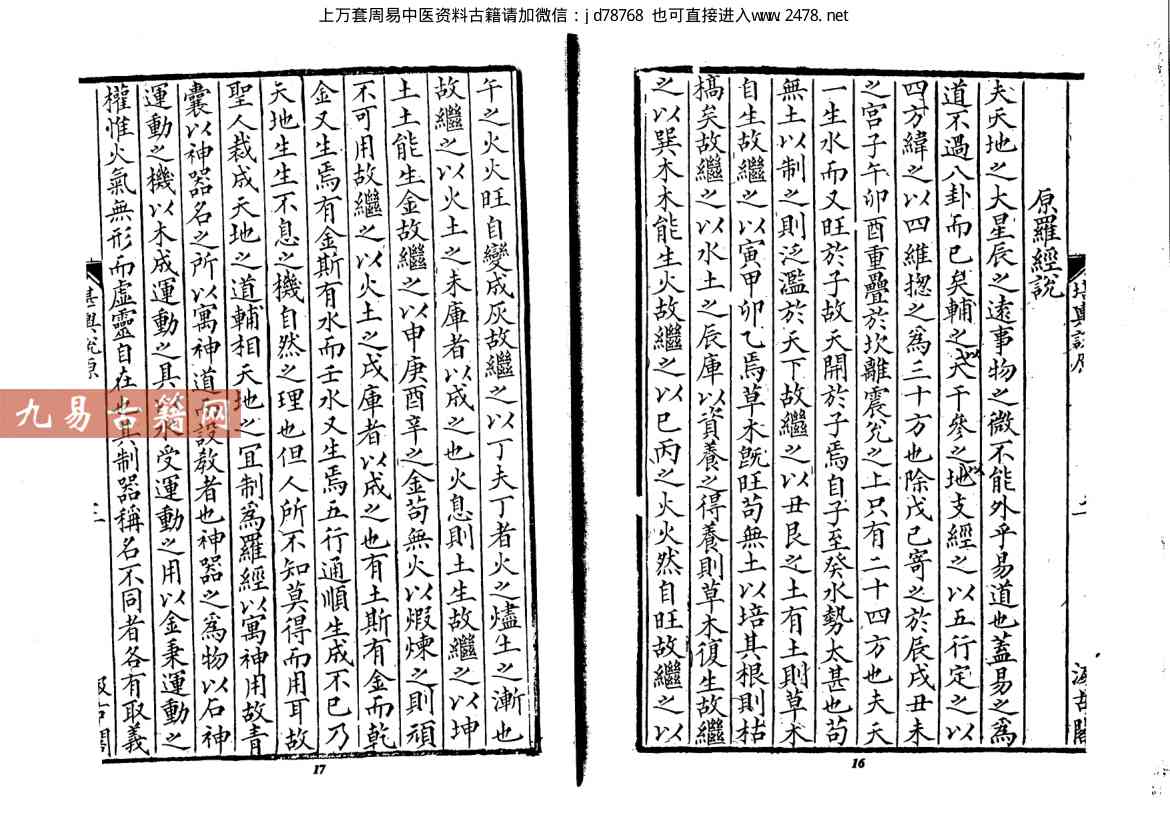 上万套周易中医资料古籍请加微信：jd78768 也可直接进入www.2478.net
原羅經說
夫天地之大星辰之遠事物之微不能外乎易道也蓋易之為
道不過八卦而已矣輔之以天干參之以地支經之以五行定之以
四方緯之以四維揔之為三十方也除戊己寄之於辰戌丑未
之宫子午卯酉重疊於坎離震兌之上只有二十四方也夫天
一生水而又旺於子故天開於子焉自子至癸水勢太甚也苟
無土以制之則泛濫於天下故繼之以丑艮之土有土則草木
自生故繼之以寅甲卯乙焉草木旣旺苟無土以培其根則枯
槁矣故繼之以水土之辰庫以資養之得養則草木復生故繼
之以巽木木能生火故繼之以巳丙之火火然自旺故繼之以
16
午之火火旺自變成灰故繼之以丁夫丁者火之燼土之漸也
故繼之以火土之未庫者以成之也火息則土生故繼之以坤
土土能生金故繼之以申庚酉辛之金苟無火以煆煉之則頑
不可用故繼之以火土之戌庫者以成之也有土斯有金而乾
金又生焉有金斯有水而壬水又生焉五行通順生成不已乃
天地生生不息之機自然之理也但人所不知莫得而用耳故
聖人裁成天地之道輔相天地之宜制為羅經以寓神用故青
囊以神器名之所以寓神道而設教者也神器之為物以石神
運動之機以木成運動之具以水受運動之用以金秉運動之
權惟火氣無形而虛靈自在也其制器稱名不同者各有取義
堪輿說原
17
九易古籍网